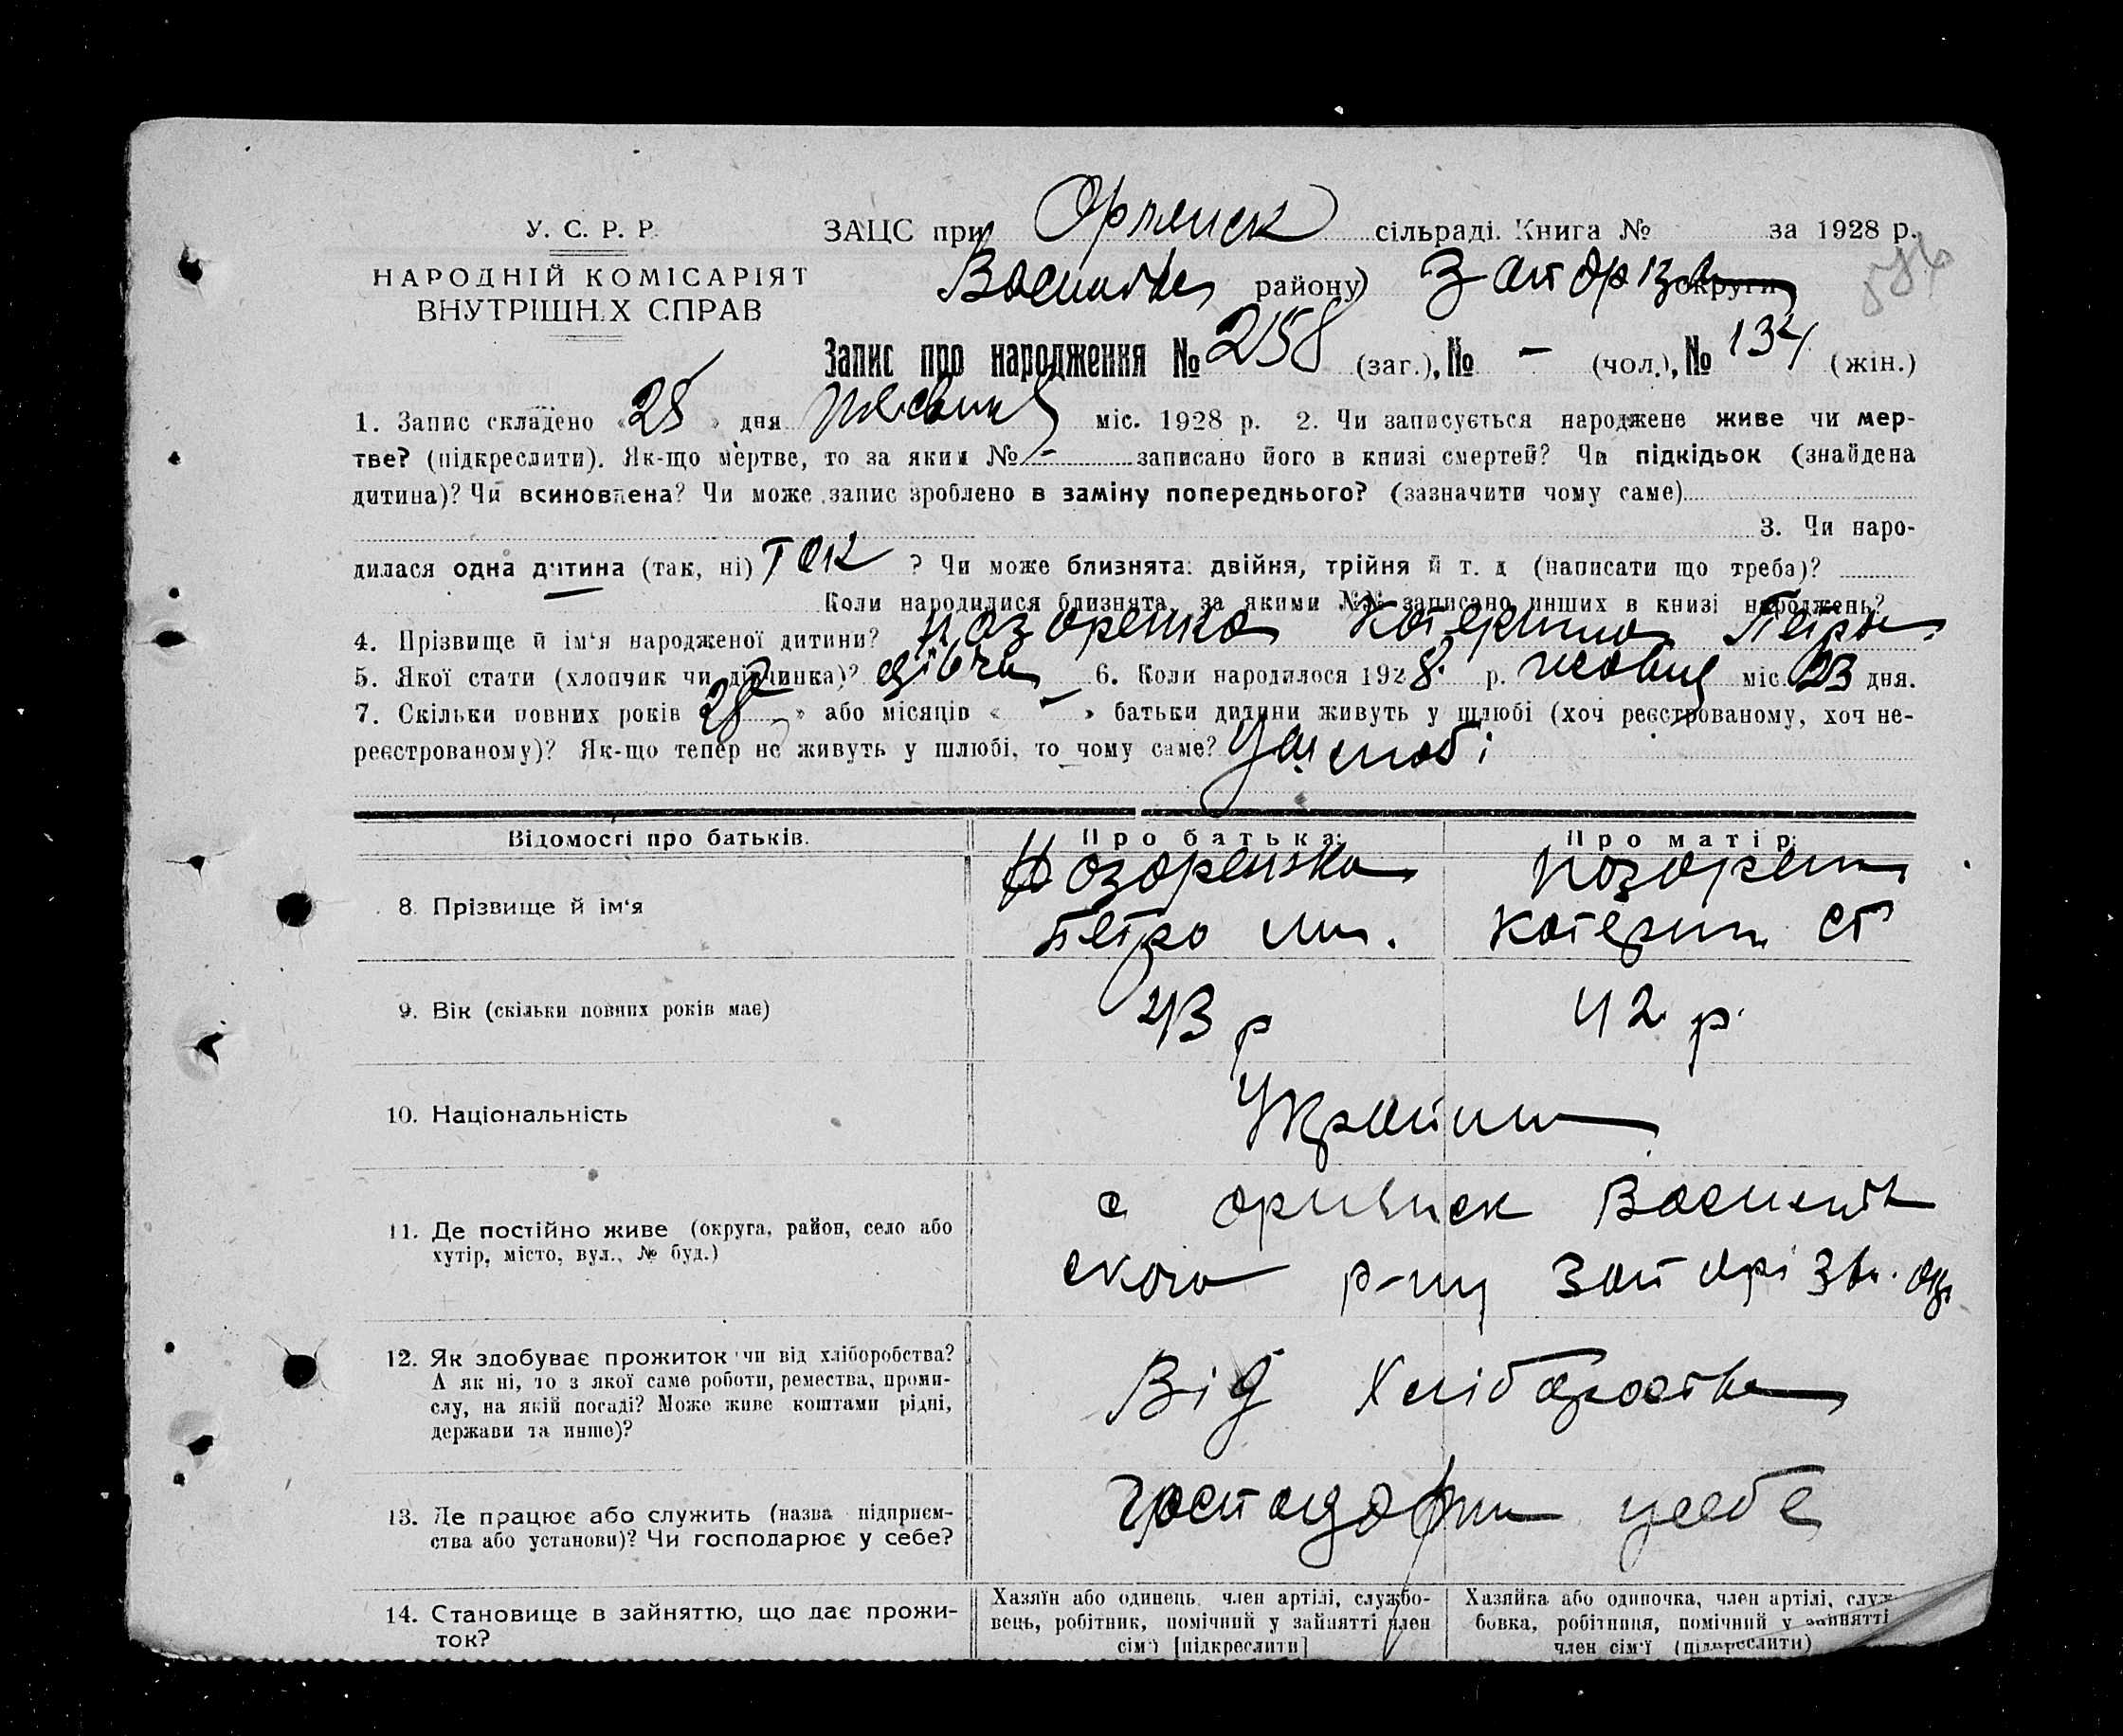 У. С. Р. Р.
ЗАЦС при сільраді. Книга № за 1928 р.
НАРОДНІЙ КОМІСАРІЯТ
району) Запоріз округи
ВНУТРІШНІХ СПРАВ
Запис про народження № 258 (заг.), № – (чол.), № 134 (жін.)
1. Запис складено «25» дня міс. 1928 р. 2. Чи записується народжене живе чи мер-
тве? (підкреслити). Як-що мертве, то за яким № – записано його в книзі смертей? Чи підкідьок (знайдена
дитина)? Чи всиновлена? Чи може запис зроблено в заміну попереднього? (зазначити чому саме)
3. Чи наро-
дилася одна дитина (так, ні) так ? Чи може близнята: двійня, трійня й т. д. (написати що треба)?
Коли народилися близнята, за якими №№ записано инших в книзі народжень?
4. Прізвище й ім‘я народженої дитини? Назоренко Катерина Петр
5. Якої стати (хлопчик чи дівчинка)? дівчи 6. Коли народилося 1928 р. жовтня міс. 23 дня.
7. Скільки повних років « » або місяців « – » батьки дитини живуть у шлюбі (хоч реєстрованому, хоч не-
реєстрованому)? Як-що тепер не живуть у шлюбі, то чому саме? У шлюбі
Відомості про батьків. Про батька: Про матір:
8. Прізвище й ім‘я
Назоренко Назорен
Петро Катерин Ст
9. Вік (скільки повних років має) 43 р 42 р.
10. Національність Україн
11. Де постійно живе (округа, район, село або
хутір, місто, вул., № буд.)
с Василів
ского р-ну Запорізьк. окр
12. Як здобуває прожиток чи від хліборобства?
А як ні, то з якої саме роботи, ремества, проми-
слу, на якій посаді? Може живе коштами рідні,
держави та инше)?
Від Хліборобства
13. Де працює або служить (назва підприєм-
ства або установи)? Чи господарює у себе?
господарює у себе
14. Становище в зайняттю, що дає прожи-
ток?
Хазяїн або одинець, член артілі, службо-
вець, робітник, помічний у зайнятті член
сім‘ї [підкреслити]
Хазяйка або одиночка, член артілі, служ-
бовка, робітниця, помічний у зайнятті
член сім‘ї (підкреслити)